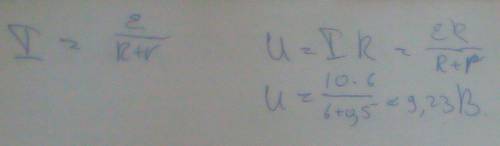 I = ε/(R+r)
U = I R = εR/(R+r)
U = 10·6/(6+0,5) = 9,23 В